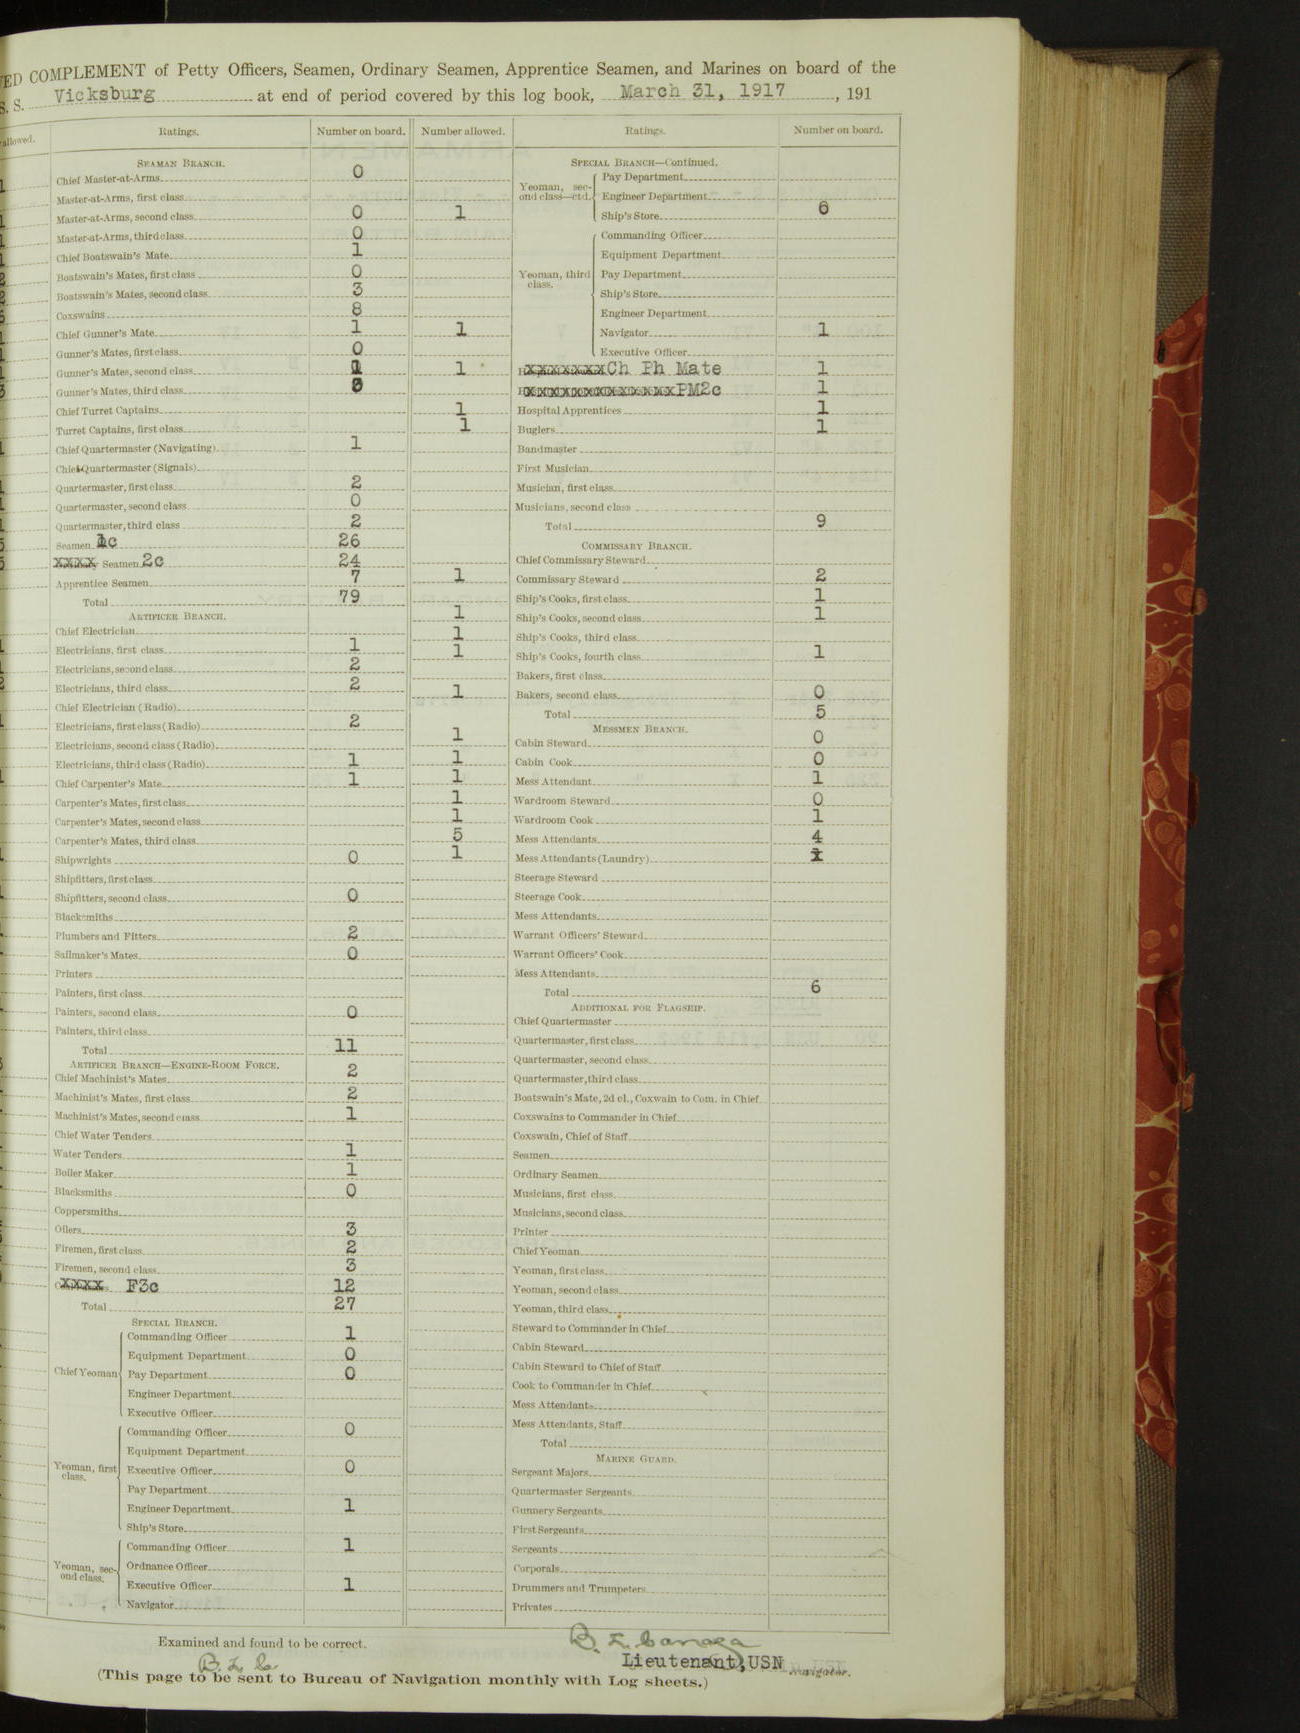 ED COMPLEMENT of Petty Officers, Seamen, Ordinary Seamen, Apprentice Seamen, and Marines on board of the
S. S. Vicksburg at end of period covered by this log book, March 31, 1917, 191
allowed. Ratings. Number on board. Number allowed. Ratings. Number on board.
SEAMAN BRANCH.
Chief Master-at-Arms 0
Master-at-Arms, first class
Master-at-Arms, second class 0
Master-at-Arms, third class 0
Chief Boatswain's Mate 1
Boatswain's Mates, first class 0
Boatswain's Mates, second class 3
Coxswains 8
Chief Gunner's Mate 1
Gunner's Mates, first class 0
Gunner's Mates, second class
Gunner's Mates, third class
Chief Turret Captains
Turret Captains, first class
Chief Quartermaster (Navigating) 1
Chief Quartermaster (Signals)
Quartermaster, first class 2
Quartermaster, second class 0
Quartermaster, third class 2
Seamen 1c 26
xxxx Seamen 2c 24
Apprentice Seamen 7
Total 79
ARTIFICER BRANCH.
Chief Electrician
Electricians, first class 1
Electricians, second class 2
Electricians, third class 2
Chief Electrician (Radio)
Electricians, first class (Radio) 2
Electricians, second class (Radio)
Electricians, third class (Radio) 1
Chief Carpenter's Mate 1
Carpenter's Mates, first class
Carpenter's Mates, second class
Carpenter's Mates, third class
Shipwrights 0
Shipfitters, first class
Shipfitters, second class 0
Blacksmiths
Plumbers and Fitters 2
Sailmaker's Mates 0
Printers
Painters, first class
Painters, second class 0
Painters, third class
Total 11
ARTIFICER BRANCH—ENGINE-ROOM FORCE.
Chief Machinist's Mates 2
Machinist's Mates, first class 2
Machinist's Mates, second class 1
Chief Water Tenders
Water Tenders 1
Boiler Maker 1
Blacksmiths 0
Coppersmiths
Oilers 3
Firemen, first class 2
Firemen, second class 3
xxxx F3c 12
Total 27
SPECIAL BRANCH.
Chief Yeoman
Commanding Officer 1
Equipment Department 0
Pay Department 0
Engineer Department
Executive Officer
Yeoman, first class.
Commanding Officer 0
Equipment Department
Executive Officer 0
Pay Department
Engineer Department 1
Ship's Store
Yeoman, second class.
Commanding Officer 1
Ordnance Officer
Executive Officer 1
Navigator
SPECIAL BRANCH—Continued.
Yeoman, second class—ctd.
Pay Department
Engineer Department
1 Ship's Store 0
Yeoman, third class.
Commanding Officer
Equipment Department
Pay Department
Ship's Store
Engineer Department
1 Navigator 1
Executive Officer
1 xxxxxxxCh Ph Mate 1
xxxxxxxxxxxxxPM2c 1
1 Hospital Apprentices 1
1 Buglers 1
Bandmaster
First Musician
Musician, first class
Musicians, second class
Total 9
COMMISSARY BRANCH.
Chief Commissary Steward
1 Commissary Steward 2
Ship's Cooks, first class 1
1 Ship's Cooks, second class 1
1 Ship's Cooks, third class
1 Ship's Cooks, fourth class 1
Bakers, first class
1 Bakers, second class 0
Total 5
MESSMEN BRANCH.
1 Cabin Steward 0
1 Cabin Cook 0
1 Mess Attendant 1
1 Wardroom Steward 0
1 Wardroom Cook 1
5 Mess Attendants 4
1 Mess Attendants (Laundry)
Steerage Steward
Steerage Cook
Mess Attendants
Warrant Officers' Steward
Warrant Officers' Cook
Mess Attendants
Total 6
ADDITIONAL FOR FLAGSHIP.
Chief Quartermaster
Quartermaster, first class
Quartermaster, second class
Quartermaster, third class
Boatswain's Mate, 2d cl., Coxwain to Com. in Chief
Coxswains to Commander in Chief
Coxswain, Chief of Staff
Seamen
Ordinary Seamen
Musicians, first class
Musicians, second class
Printer
Chief Yeoman
Yeoman, first class
Yeoman, second class
Yeoman, third class
Steward to Commander in Chief
Cabin Steward
Cabin Steward to Chief of Staff
Cook to Commander in Chief
Mess Attendants
Mess Attendants, Staff
Total
MARINE GUARD.
Sergeant Majors
Quartermaster Sergeants
Gunnery Sergeants
First Sergeants
Sergeants
Corporals
Drummers and Trumpeters
Privates
Examined and found to be correct.
Lieutenant, USN Navigator.
(This page to be sent to Bureau of Navigation monthly with Log sheets.)